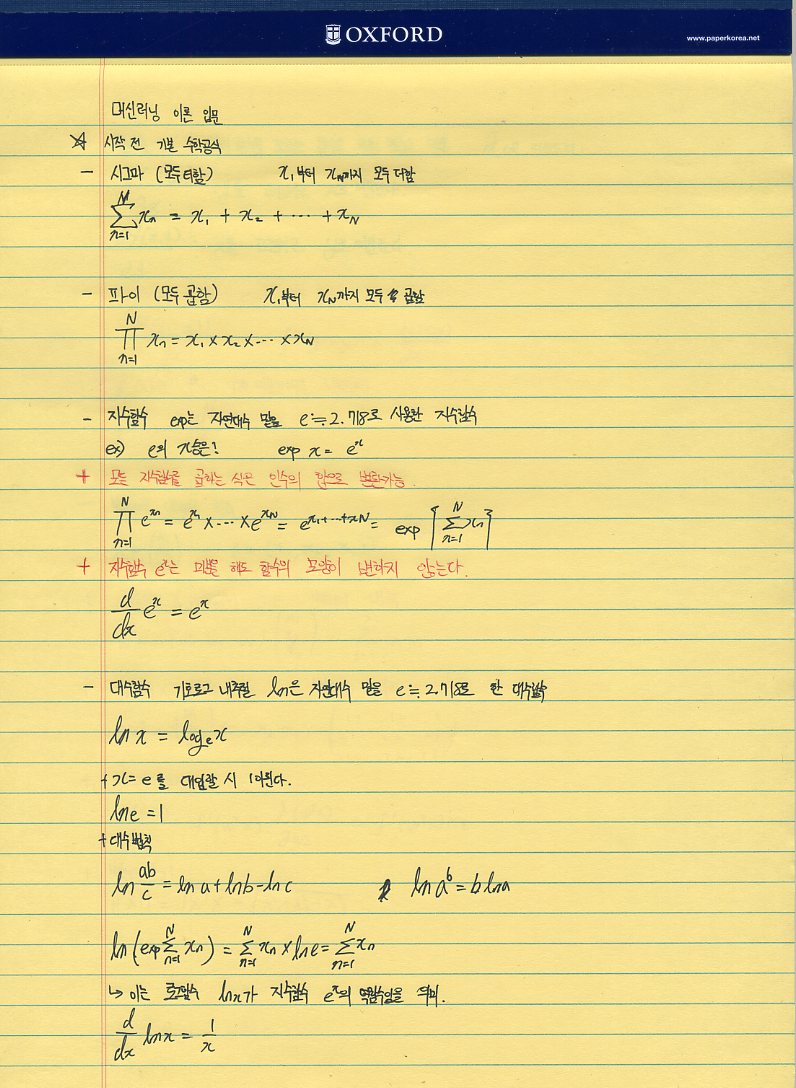 OXFORD
www.paperkorea.net
머신러닝 이론 입문
☆ 시작 전 기본 수학공식
- 시그마 (모두 더함) x₁부터 x_N까지 모두 더함
∑_{n=1}^{N} xₙ = x₁ + x₂ + ⋯ + x_N
- 파이 (모두 곱함) x₁부터 x_N까지 모두 곱함
∏_{n=1}^{N} xₙ = x₁ × x₂ × ⋯ × x_N
- 지수함수 exp는 자연대수 밑을 e ≒ 2.718로 사용한 지수함수
ex) e의 x승은? exp x = eˣ
+ 모든 지수함수를 곱하는 식은 인수의 합으로 변환가능.
∏_{n=1}^{N} e^{xₙ} = e^{x₁} × ⋯ × e^{x_N} = e^{x₁+⋯+x_N} = exp [∑_{n=1}^{N} xₙ]
+ 지수함수 eˣ는 미분을 해도 함수의 모양이 변하지 않는다.
d/dx eˣ = eˣ
- 대수함수 기호로그 내추럴 ln은 자연대수 밑을 e ≒ 2.718로 한 대수함수
ln x = logₑx
+ x = e를 대입할 시 1이된다.
ln e = 1
+ 대수법칙
ln ab/c = ln a + ln b - ln c ln aᵇ = b ln a
ln (exp ∑_{n=1}^{N} xₙ) = ∑_{n=1}^{N} xₙ × ln e = ∑_{n=1}^{N} xₙ
↳ 이는 로그함수 ln x가 지수함수 eˣ의 역함수임을 의미.
d/dx ln x = 1/x